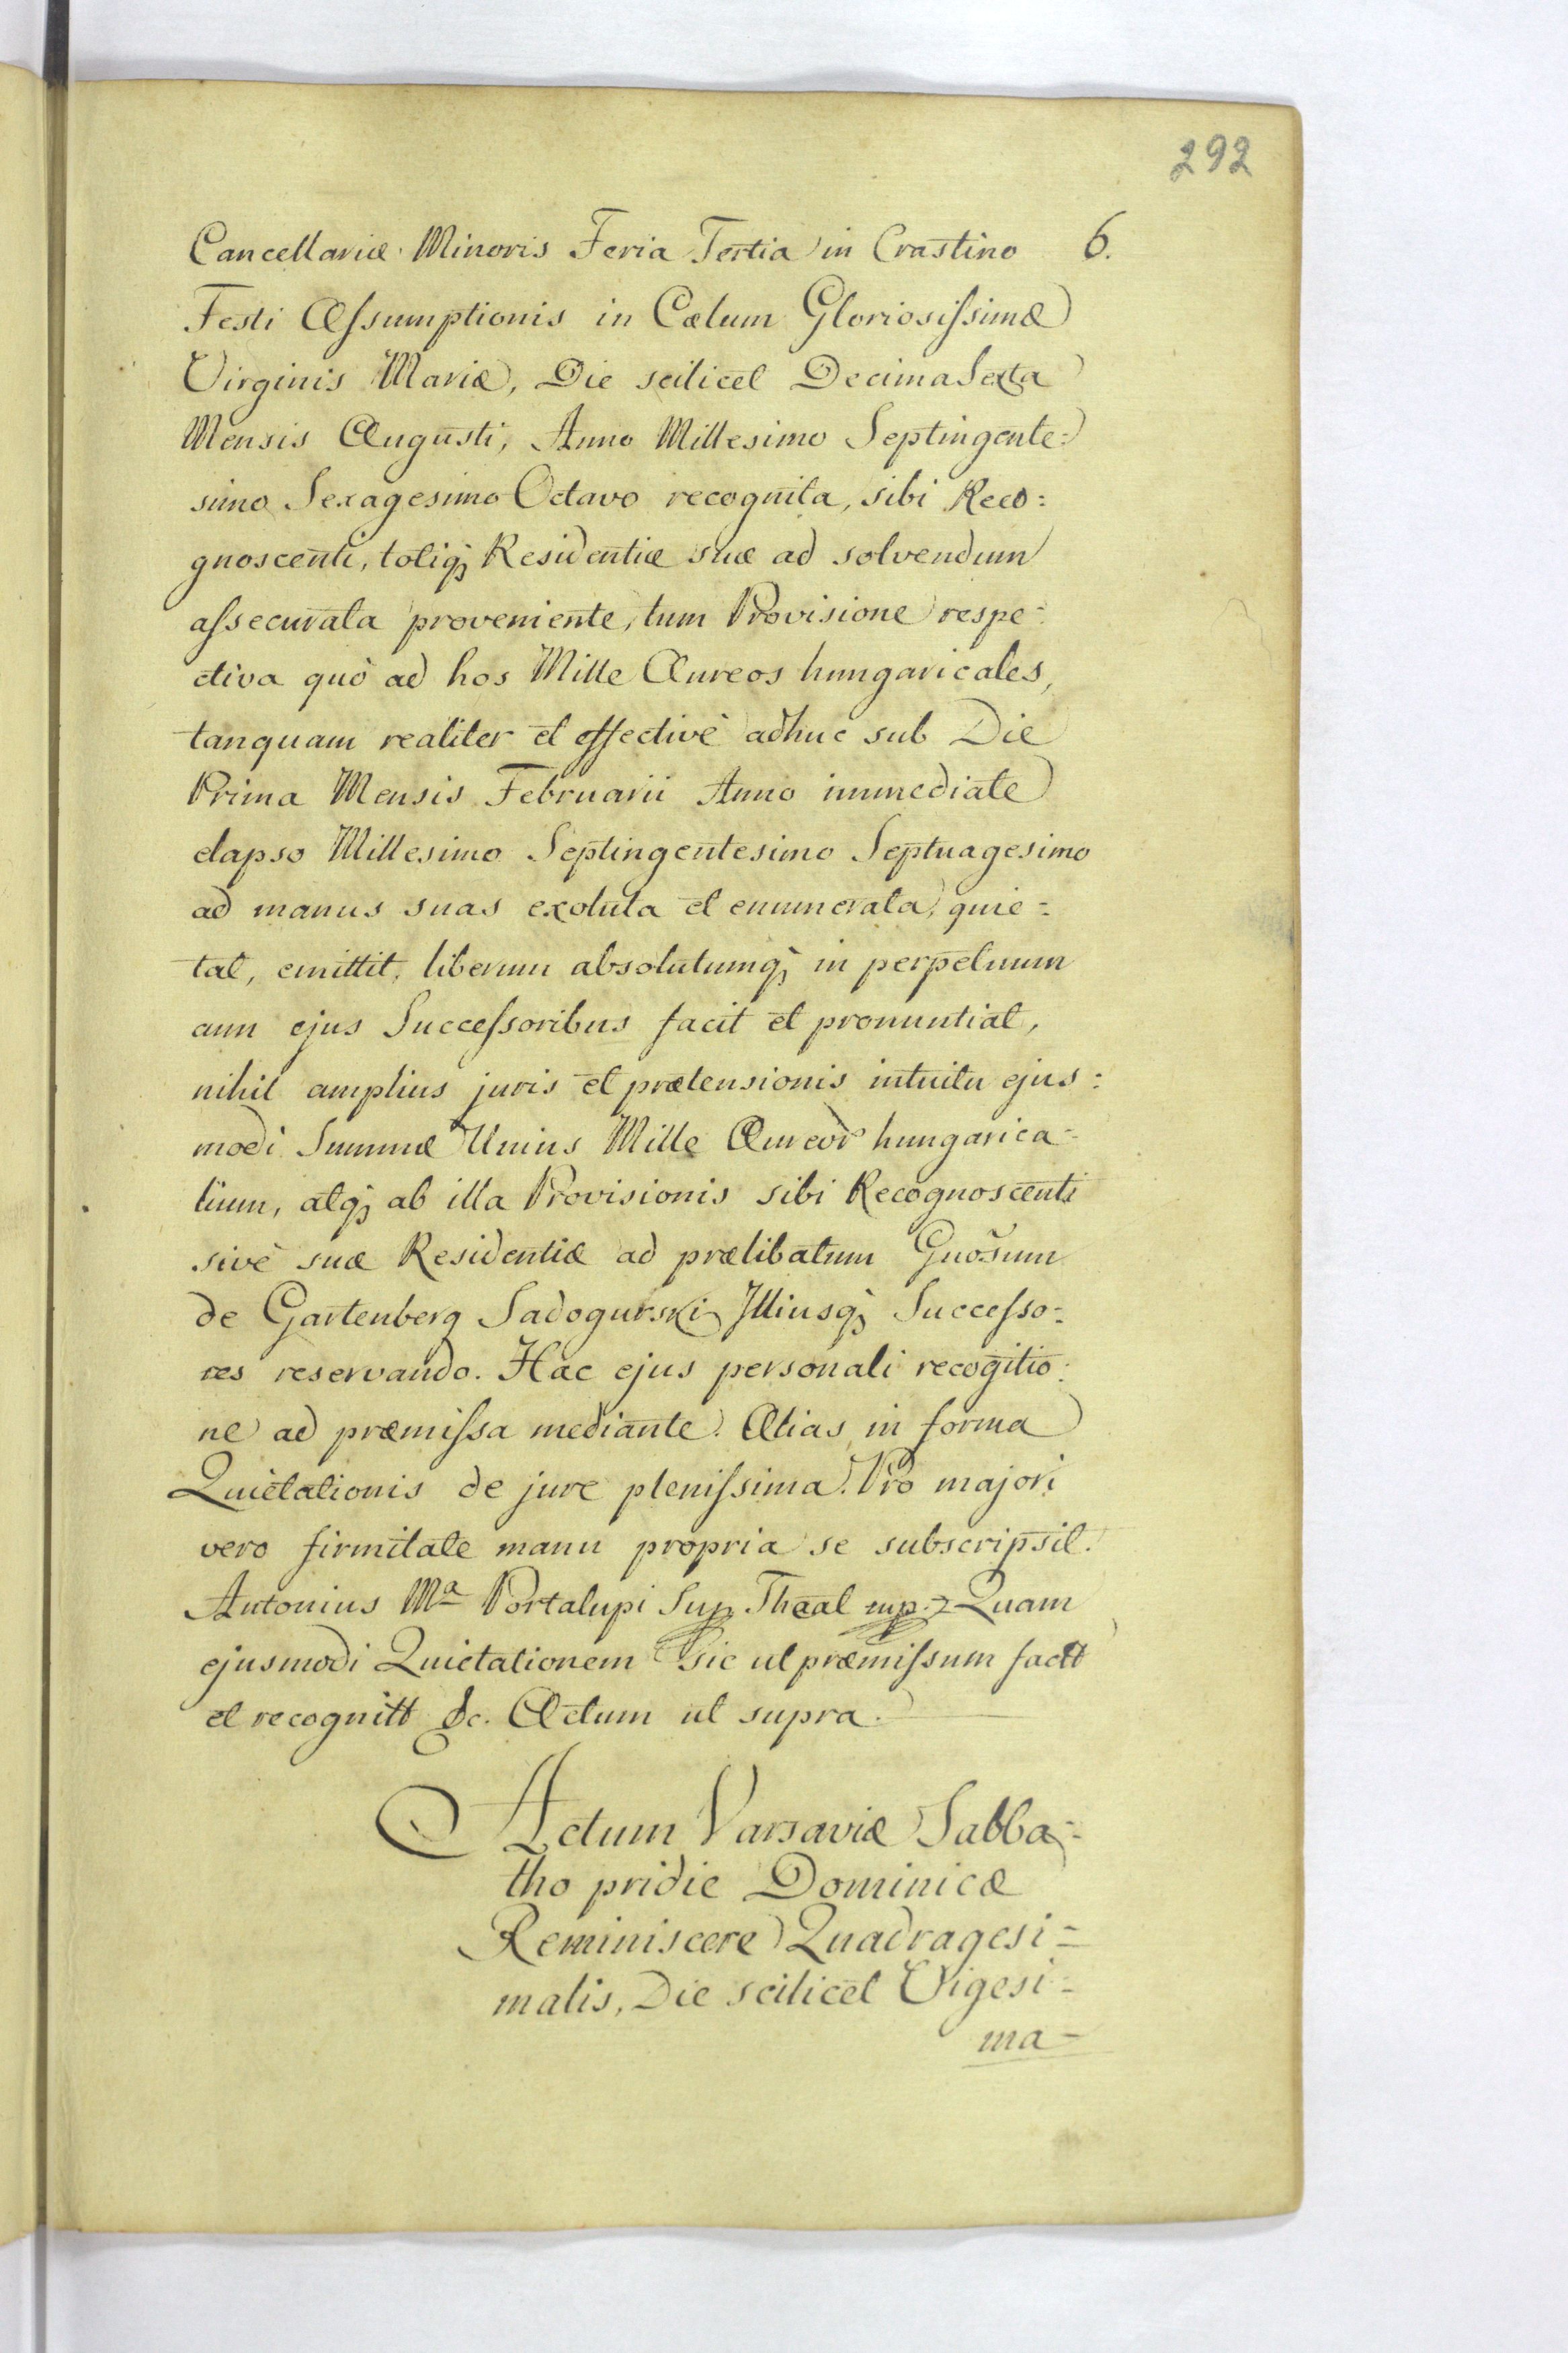 292
Cancellariæ Minoris Feria Tertia in Crastino 6.
Festi Assumptionis in Cælum Gloriosissimæ
Virginis Mariæ, Die scilicet Decima Sexta
Mensis Augusti, Anno Millesimo Septingente=
simo Sexagesimo Octavo recognita, sibi Reco=
gnoscenti, totiq; Residentiæ suæ ad solvendum
assecurata proveniente, tum Provisione respe=
ctiva quò ad hos Mille Aureos hungaricales,
tanquam realiter et effectivè adhuc sub Die
Prima Mensis Februarii Anno immediate
elapso Millesimo Septingentesimo Septuagesimo
ad manus suas exoluta et enumerata, quie=
tat, emittit, liberum absolutumq; in perpetuum
cum ejus Successoribus facit et pronuntiat,
nihil amplius juris et prætensionis intuitu ejus=
modi Summæ Unius Mille Aureor hungarica=
lium, atq; ab illa Provisionis sibi Recognoscenti
sivè suæ Residentiæ ad prælibatum Gnosum
de Gartenberg Sadogurski Illiusq; Successo=
res reservando. Hac ejus personali recogitio=
ne ad præmissa mediante. Alias in forma
Quietationis de jure plenissima. Pro majori
vero firmitate manu propria se subscripsit.
Antonius Ma Portalupi Sup Theal mp. Quam
ejusmodi Quietationem sic ut præmissum factt
et recognitt &c. Actum ut supra.
Actum Varsaviæ Sabba=
tho pridie Dominicæ
Reminiscere Quadragesi=
malis, Die scilicet Vigesi=
ma